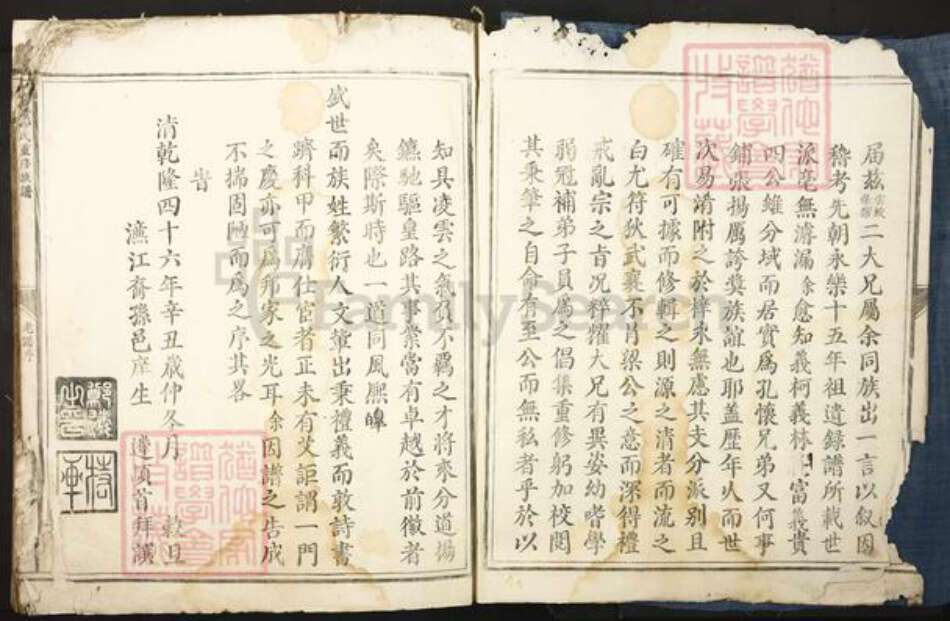 届茲宗敏二大兄屬余同族出一言以叙因
稽考先朝永樂十五年祖遺録譜所載世
派毫無滲漏余愈知義柯義林富義貴
四公雖分域而居實爲孔懷兄弟又何事
鋪張揚厲誇獎族誼也耶盖歷年久而世
次易淆附之於梓未無慮其支分派别且
確有可據而修輯之則源之清者而流之
白尤符狄武襄不肖梁公之意而深得禮
戒亂宗之旨况粹耀大兄有異姿幼嗜學
弱冠補弟子員爲之倡集重修躬加校閲
其秉筆之自命有至公而無私者乎於以
知具凌雲之氣負不羈之才將來分道揚
鑣馳驅皇路其事業當有卓越於前徽者
矣際斯時也一道同風熙皥
盛世而族姓繁衍人文蔚出秉禮義而敦詩書
躋科甲而膺仕宦者正未有艾詎謂一門
之慶亦可爲邦家之光耳余因譜之告成
不揣固陋而爲之序其畧
旹
清乾隆四十六年辛丑歳仲冬月穀旦
濂江裔孫邑庠生 遴頓首拜譔
重修族譜
FamilySearch